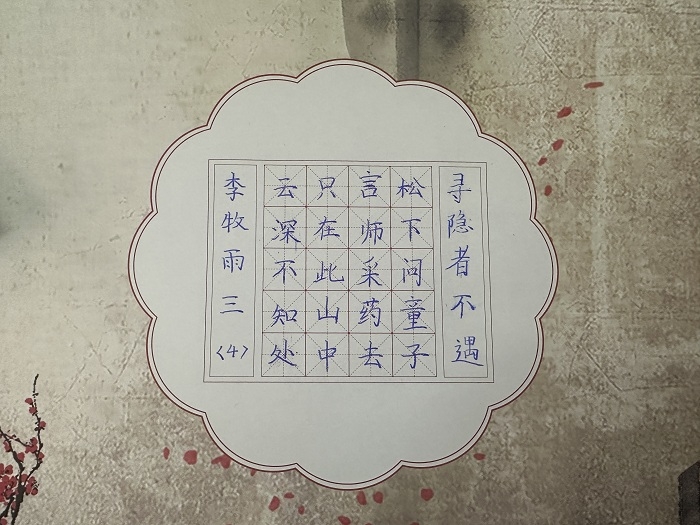 寻隐者不遇
松下问童子
言师采药去
只在此山中
云深不知处
李牧雨三〈4〉